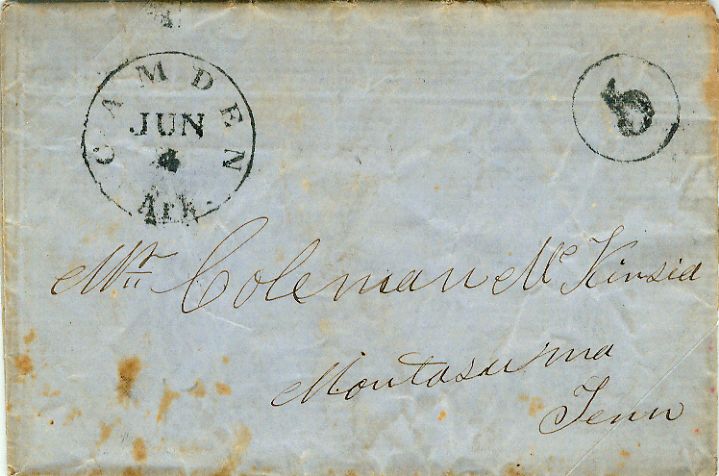 CAMDEN
JUN
4
Ark.
Mr. Coleman McKinsid
Montasuma
Tenn